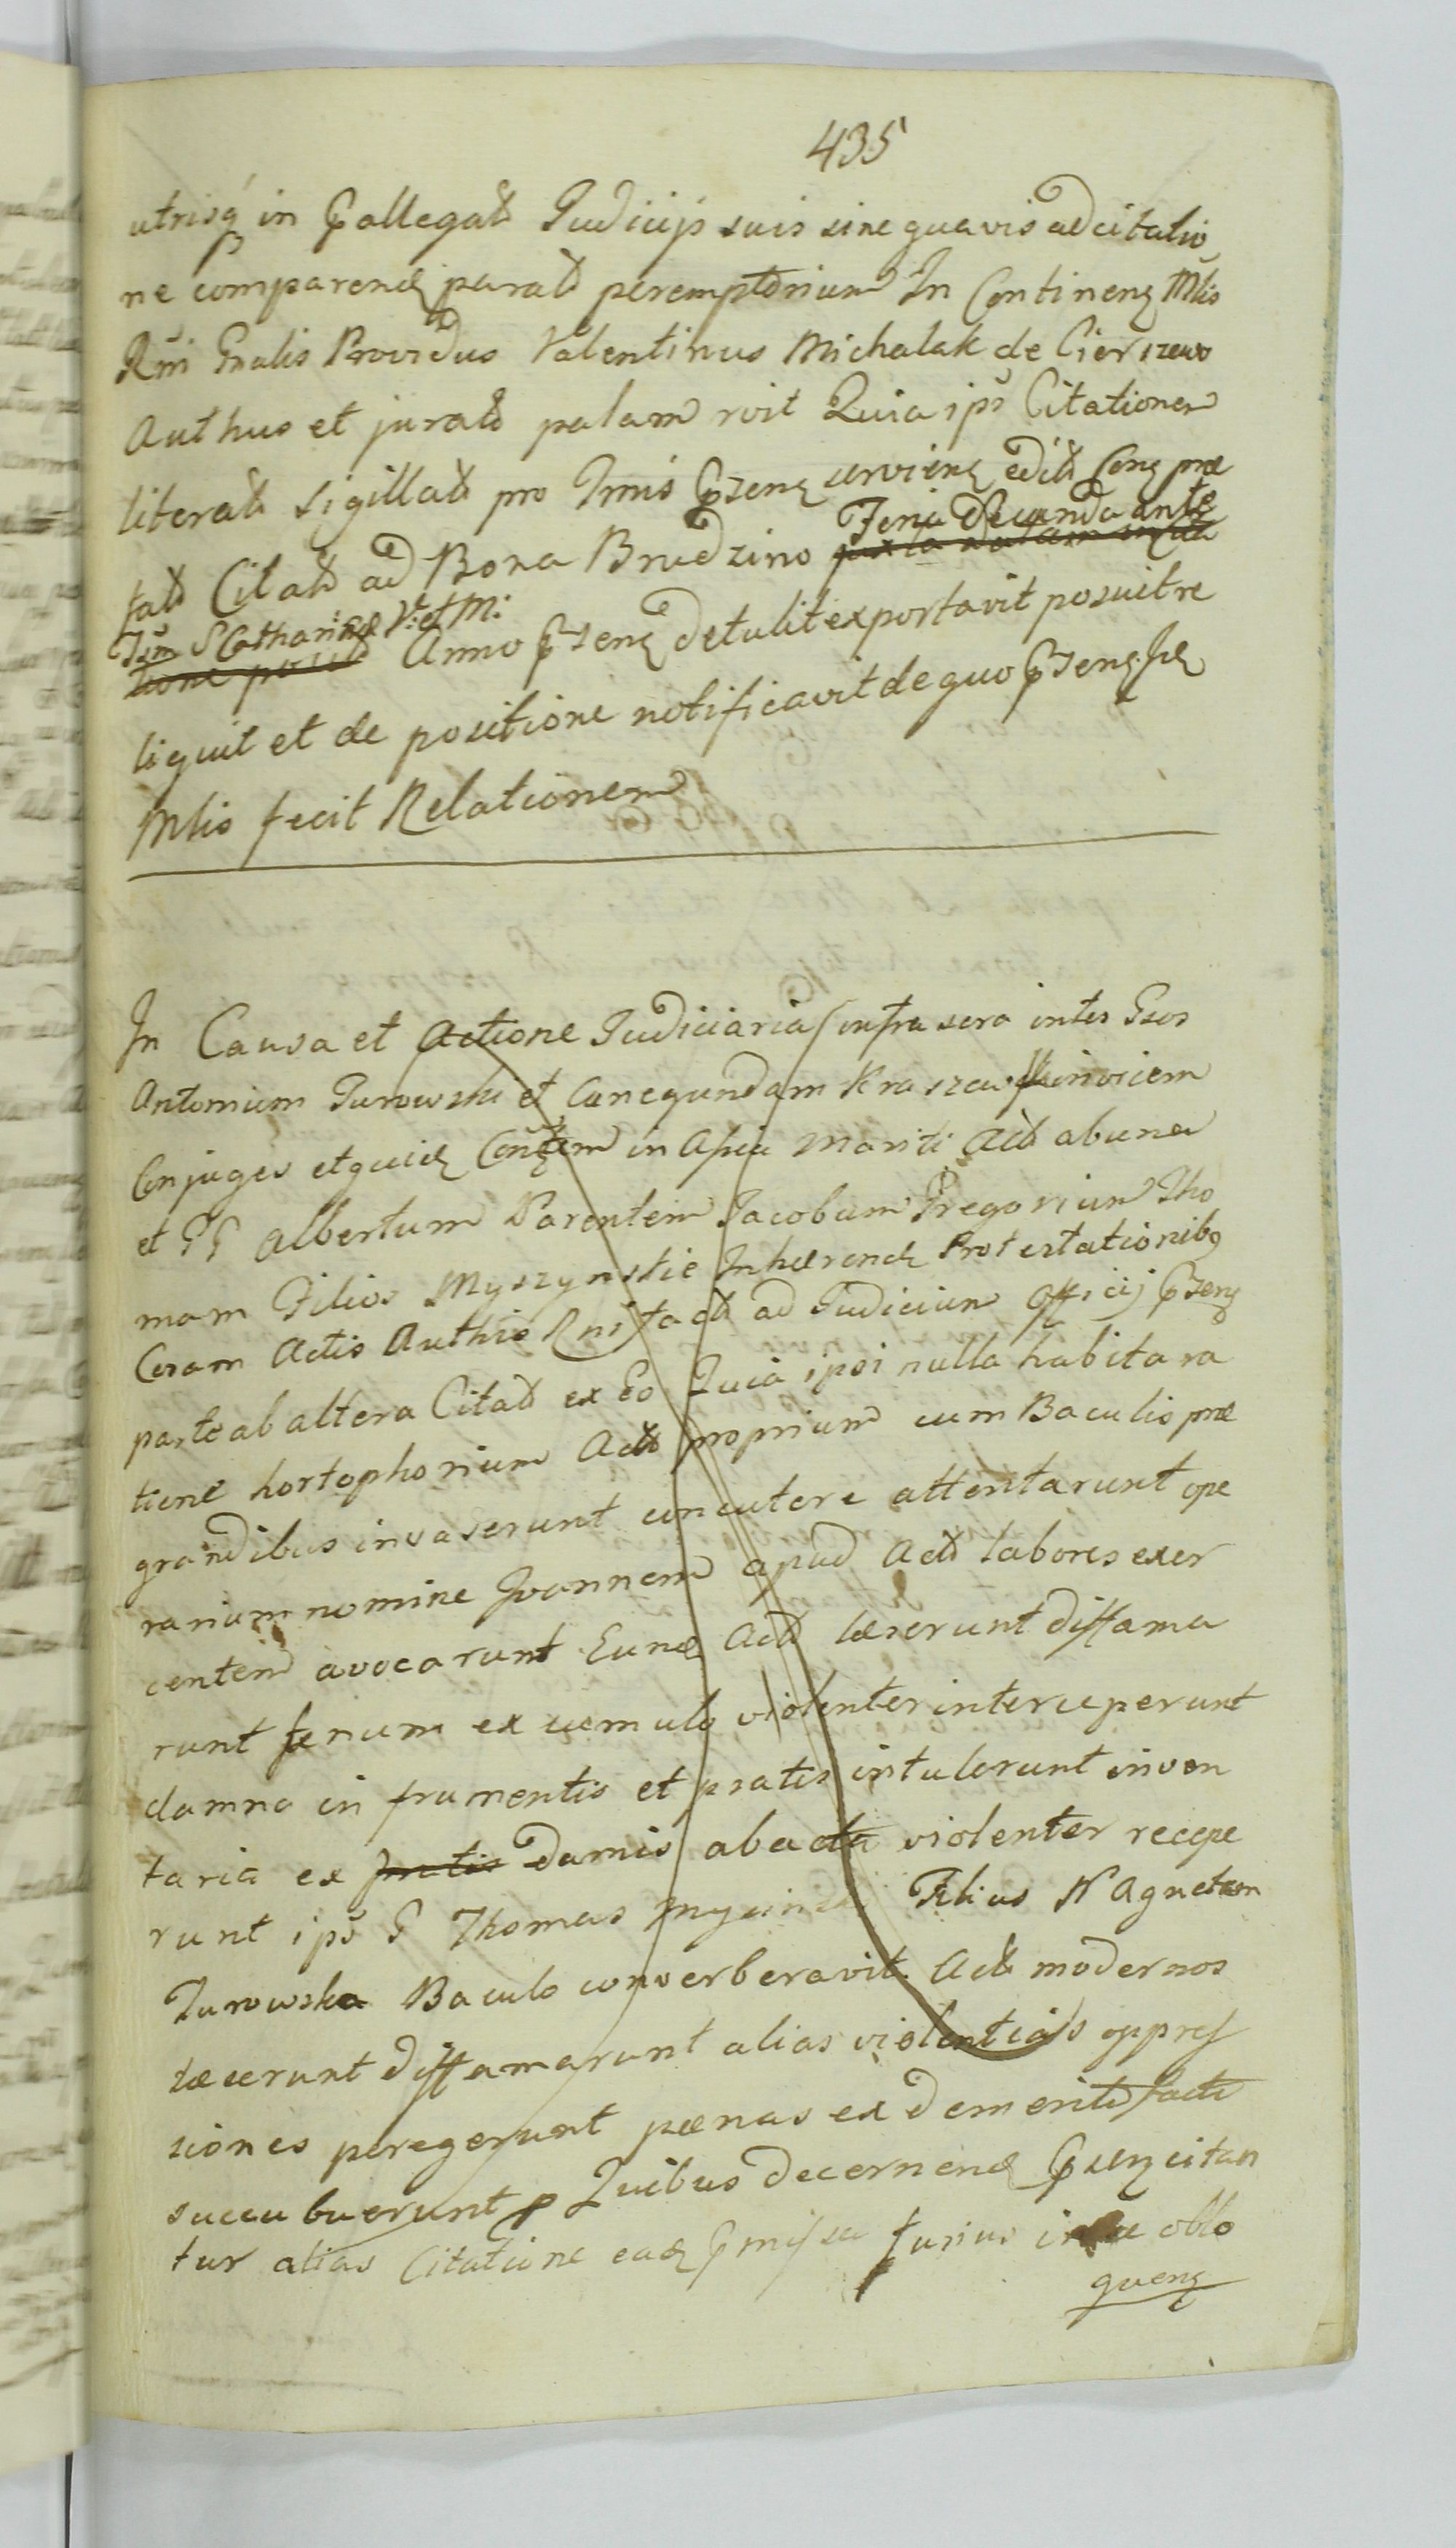 435
utrisq in Pallegatt Judicijs suis sine quavis adcitatio
ne comparend paratt peremptorium In Continen Mtis
Rm Gnalis Providus Valentinus Michalak de Cierszewo
Authus et juratt palam rvit Quia ips Citationem
literatt Sigillatt pro Trmis Pzen servien editt Con præ
tatt Citatt ad Bona Brudzino Feria Secunda ante
Tum S Catharinæ V: et M: Anno Pzen detulit exportavit posuit re
liquit et de positione notificavit de quo Pzen
Mtis fecit Relationem
In Causa et Actione Judiciaria infra scra inter Gsos
Antonium Turowski et Cunegundam Kraszew invicem
Conjuges et quid Conztem in Assia Mariti Actt ab una
et GG Albertum Parentem Jacobum Gregorium Tho
mam Filios Myszynskie Inhærend Protestationibq
Coram Actis Authis factt ad Judicium Officij Pzen
parte ab altera Citatt ex Eo Quia ipsi nulla habita ra
tione hortophorium Actt proprium cum Baculis præ
grandibus invaserunt concutere attentarunt ope
rarium nomine Joannem apud Actt labores exer
centem avocarunt Eund Actt læserunt diffama
runt fenum ex cumulo violenter interceperunt
damna in frumentis et pratis intulerunt inven
taria ex damis abacta violenter recepe
runt ips G Thomas Filius N Agnetem
Turowska Baculo converberavit Actt modernos
læserunt diffamarunt alias violentias oppres
siones peregerunt pænas ex demeritis facti
succubuerunt p Quibus decernend Pzen citan
tur alias Citatione ead Pmissa fusius in se oblo
quen